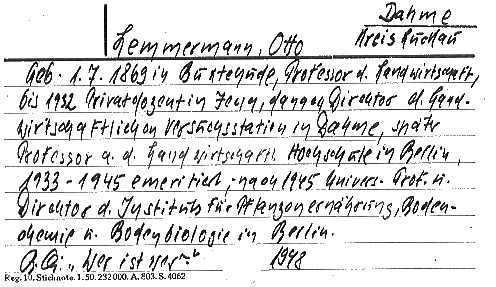 Dahme
Kreis Luckau
Lemmermann, Otto
Geb. 1.7.1869 in Buxtehude, Professor d. Landwirtschaft,
bis 1932 Privatdozent in Jena, dangen Direktor d. Land-
wirtschaftlichen Versuchsstation in Dahme, später
Professor a. d. Landwirtschaftl. Hochschule in Berlin,
1933-1945 emeritiert, nach 1945 Univers.-Prof. u.
Direktor d. Instituts für Pflanzenernährung, Boden-
chemie u. Bodenbiologie in Berlin.
"Wer ist wer" 1948
Reg. 10. Stichnote. 1. 50. 232000. A. 803. S. 4062